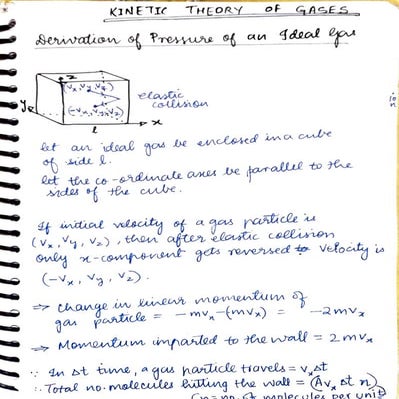 KINETIC THEORY OF GASES
Derivation of Pressure of an Ideal Gas
z
(vx, vy, vz)
(-vx, vy, vz)
elastic
collision
y
l
x
let an ideal gas be enclosed in a cube
of side l.
let the co-ordinate axes be parallel to the
sides of the cube.
If initial velocity of a gas particle is
(vx, vy, vz), then after elastic collision
only x-component gets reversed velocity is
(-vx, vy, vz).
⇒ Change in linear momentum of
gas particle = -mvx-(mvx) = -2mvx
⇒ Momentum imparted to the wall = 2mvx
∵ In Δt time, a gas particle travels = vxΔt
∴ Total no. molecules hitting the wall = (Avx Δt n)
(n = no. of molecules per unit